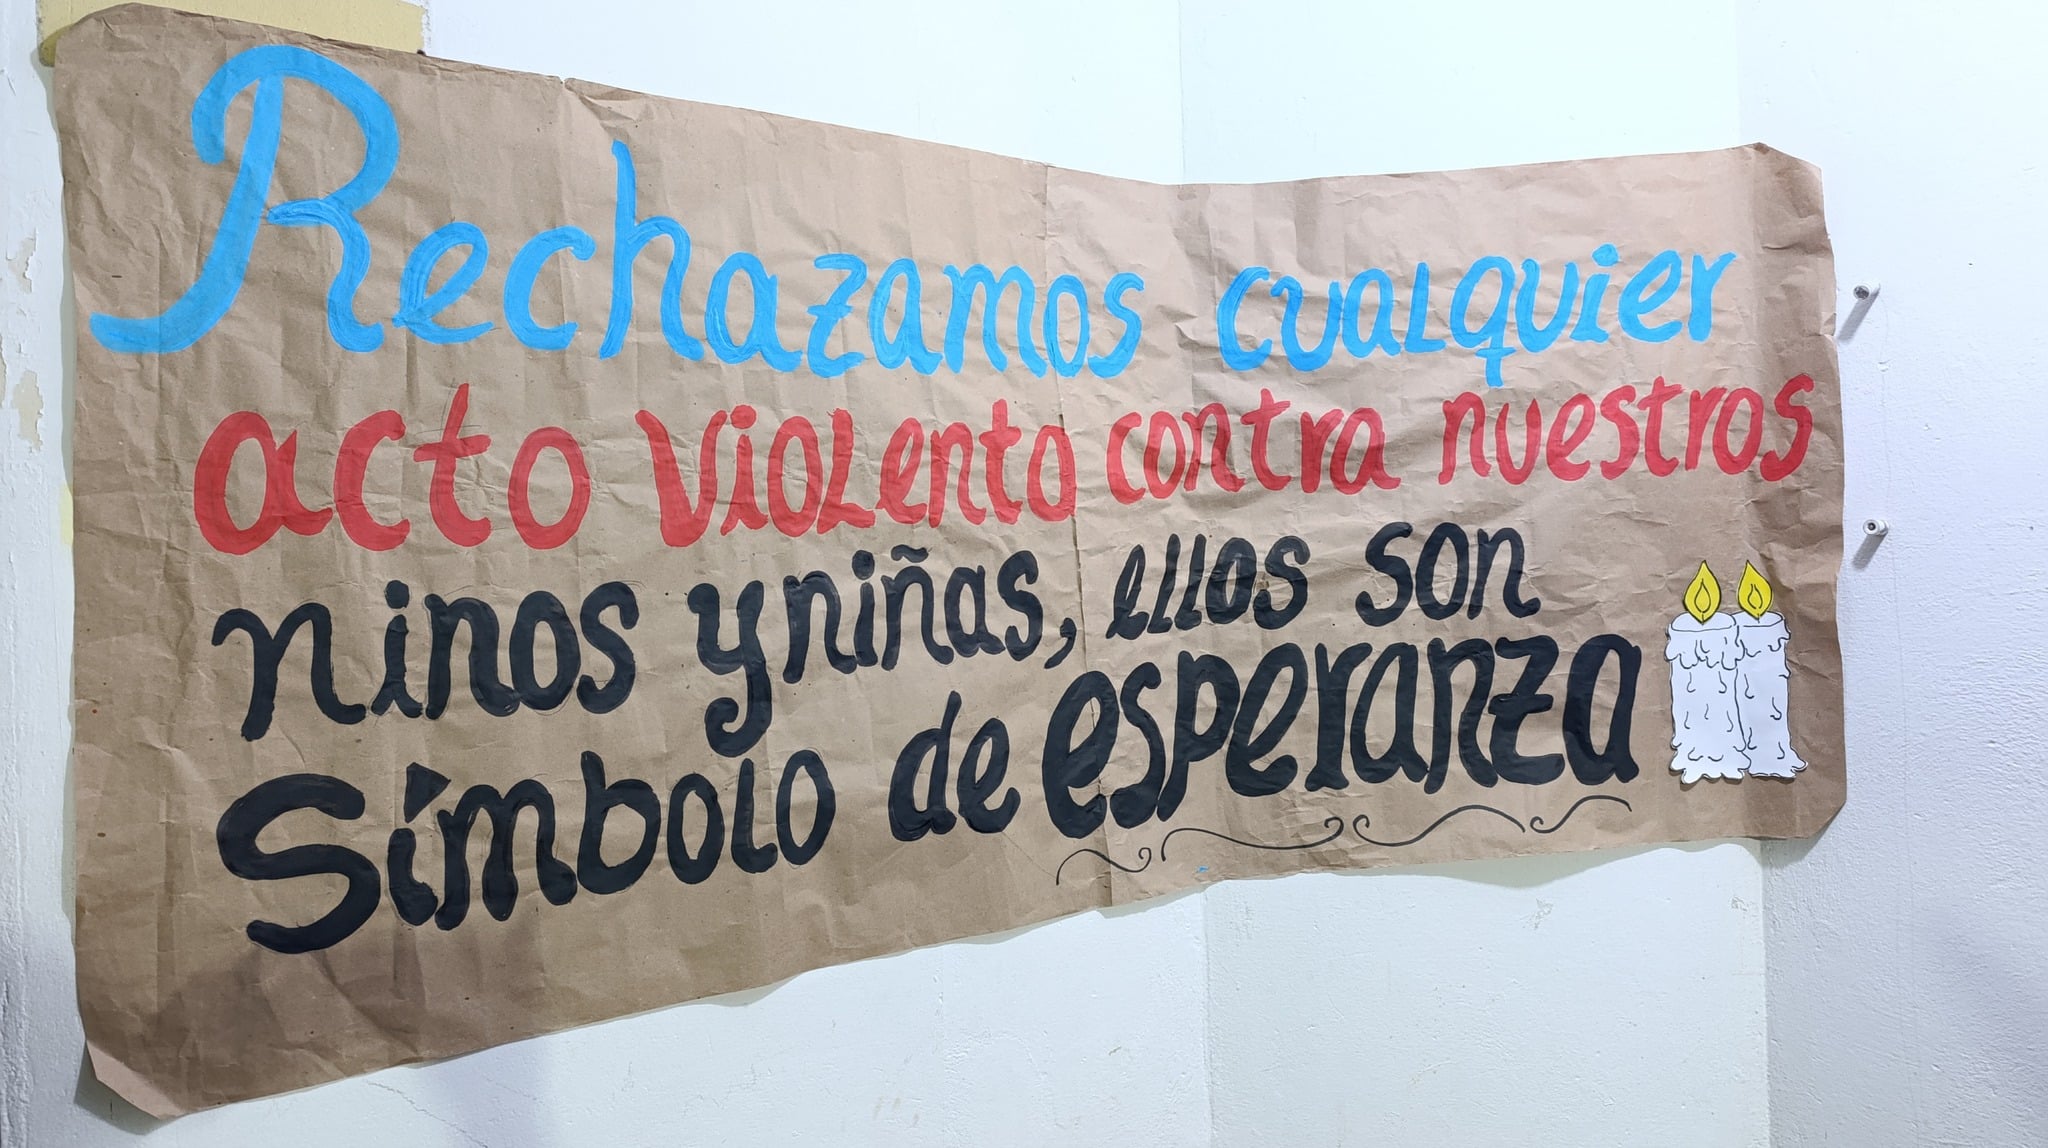 Rechazamos cualquier
acto violento contra nuestros
ninos y niñas, ellos son
Símbolo de esperanza